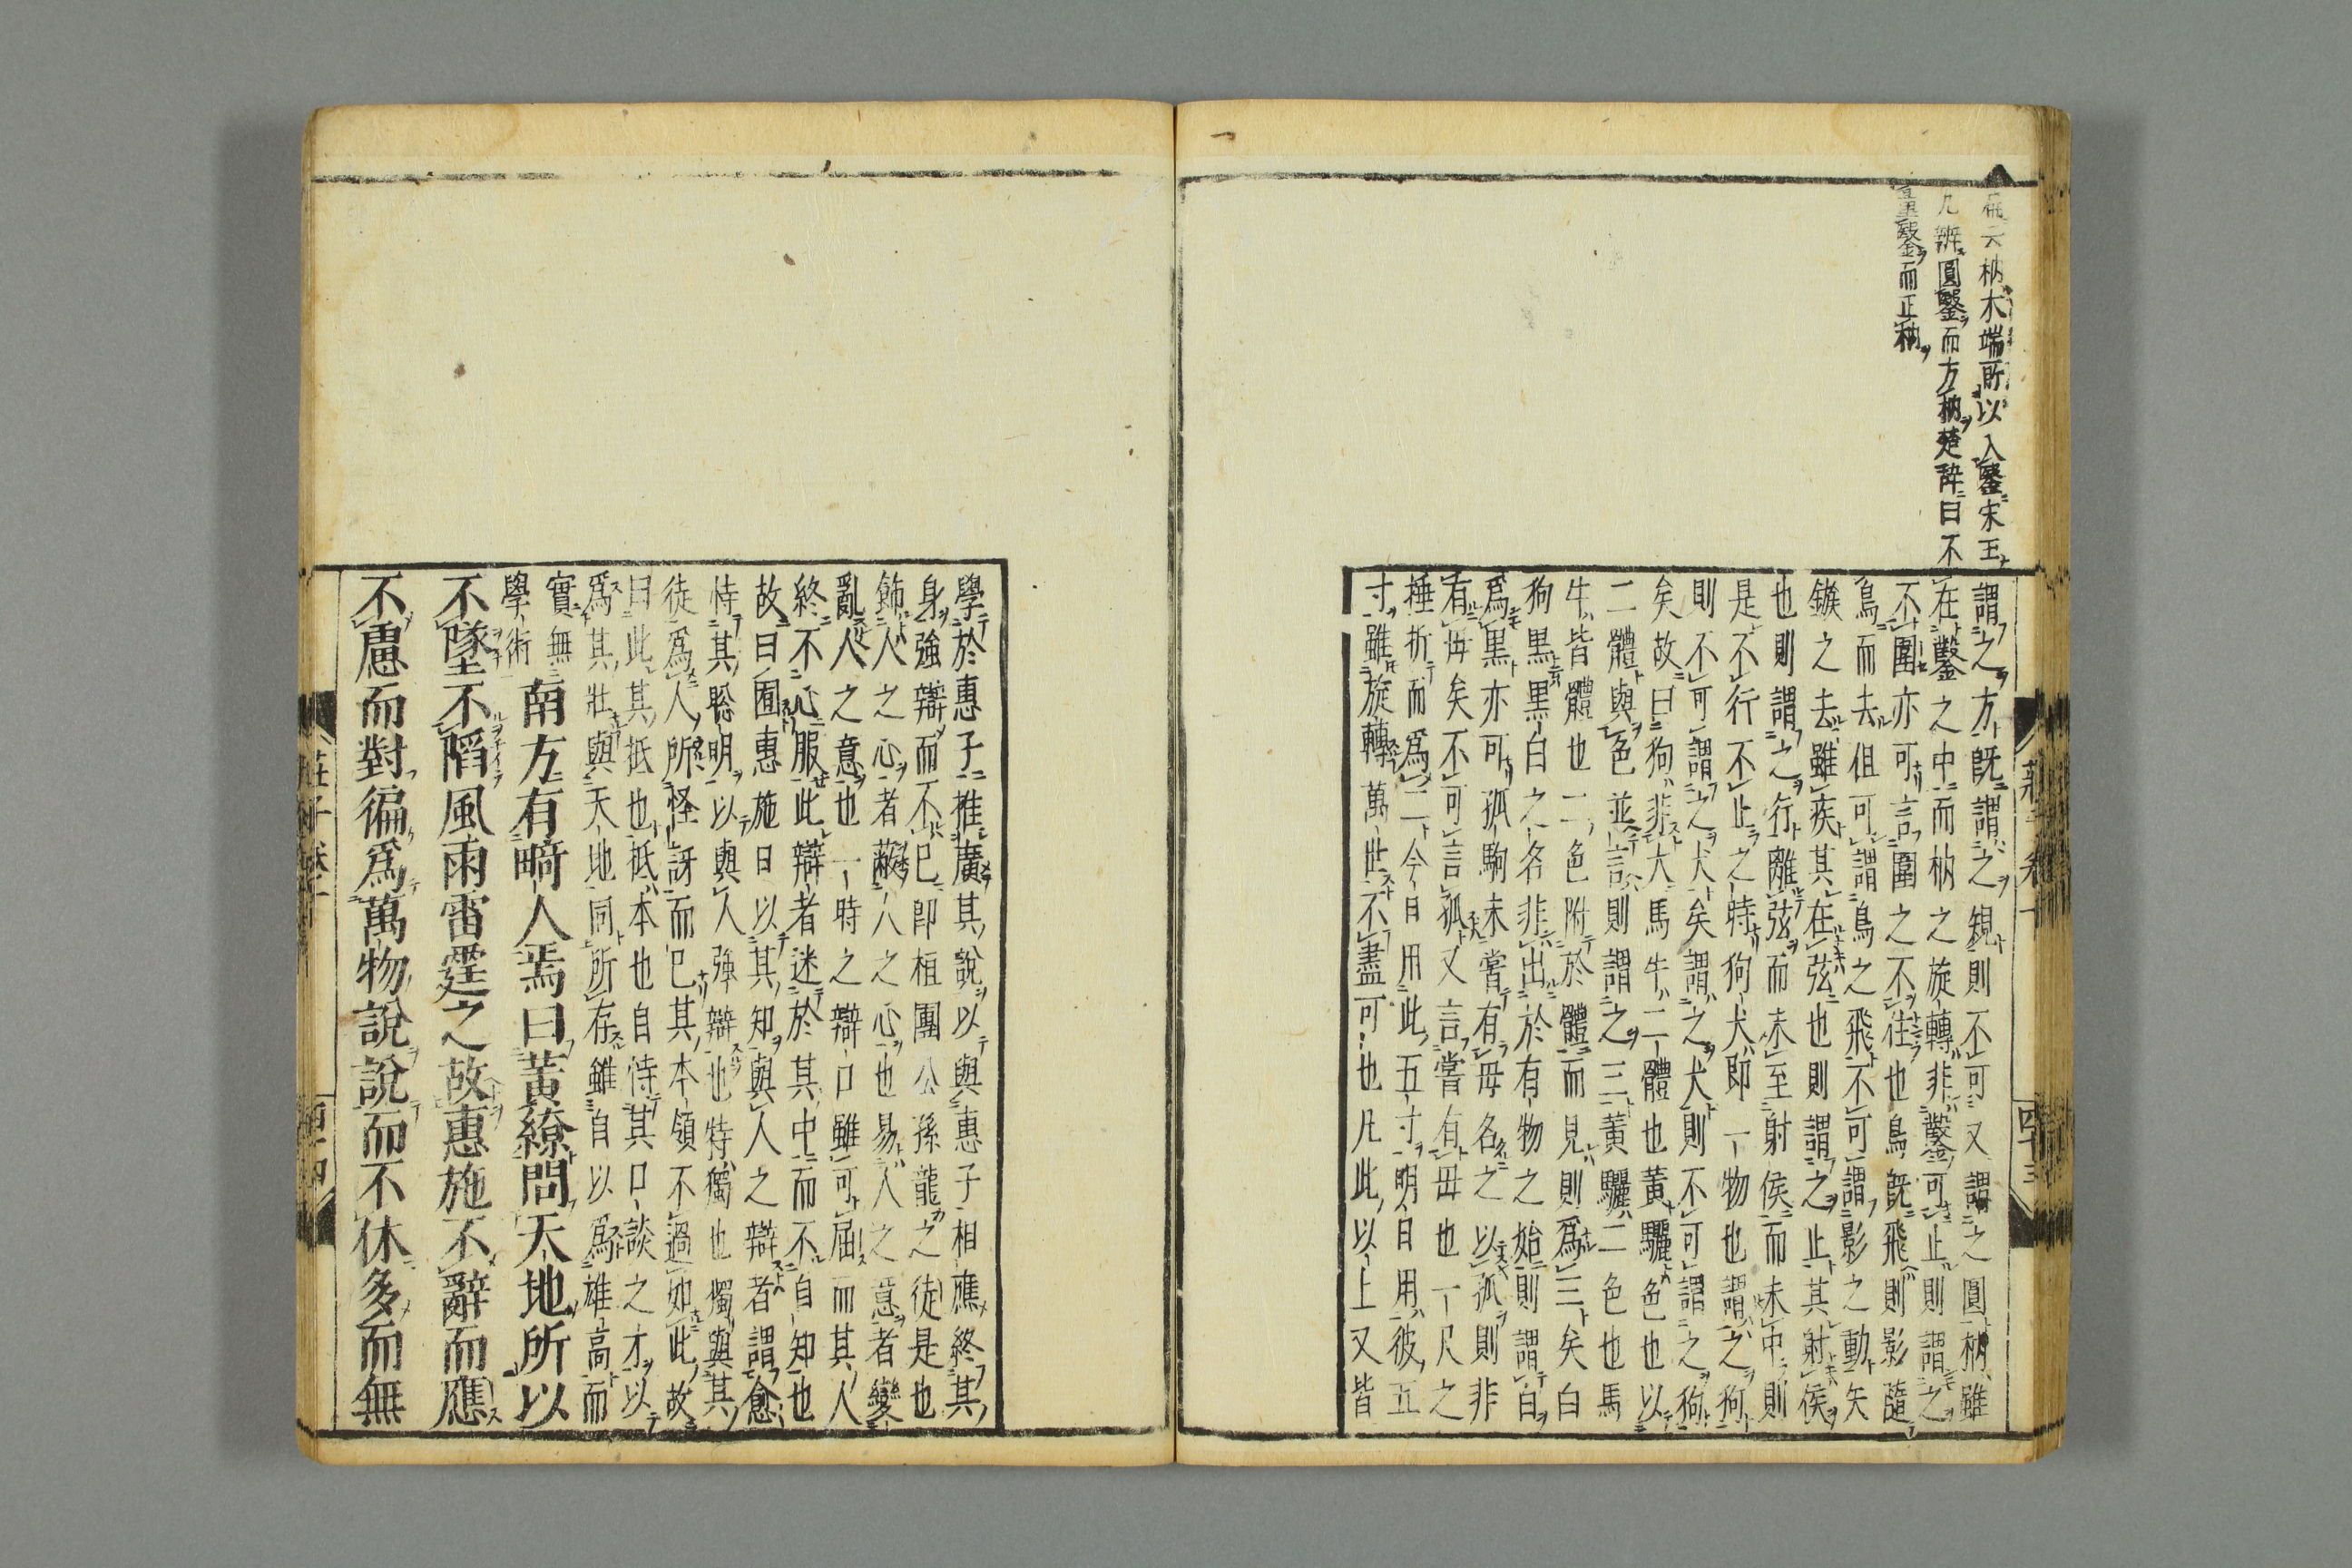 枘木端所以入鑿宋玉
九辨圓鑿而方枘楚辞曰不
量鑿而正枘
謂之方既謂之規則不可又謂之圓枘雖
在鑿之中而枘之旋轉非鑿可止則謂之
不圍亦可言圍之不住也鳥既飛則影隨
鳥而去但可謂鳥之飛不可謂影之動矢
鏃之去雖疾其在弦也則謂之止其射侯
也則謂之行離弦而未至射侯而未中則
是不行不止之時狗犬即一物也謂之狗
則不可謂之犬矣謂之犬則不可謂之狗
矣故曰狗非犬馬牛二體也黄驪色也以
二體與色並言則謂之三黄驪二色也馬
牛皆體也二色附於體而見則爲三矣白
狗黒黒白之名非出於有物之始則謂白
爲黒亦可孤駒未嘗有毋名之以孤則非
有毋矣不可言孤又言嘗有毋也一尺之
棰折而爲二今日用此五寸明日用彼五
寸雖旋轉萬世不盡可也凡此以上又皆
學於惠子推廣其說以與惠子相應終其
身強辯而不已卽桓團公孫龍之徒是也
飾人之心者蔽人之心也易人之意者變
亂人之意也一時之辯口雖可屈而其人
終不心服此辯者迷於其中而不自知也
故曰囿惠施日以其知與人之辯者謂愈
恃其聡明以與人強辯也特獨也獨與其
徒爲人所怪訝而已其本領不過如此故
曰此其柢也柢本也自恃其口談之才以
爲其壯與天地同所存雖自以爲雄高而
實無
學術
南方有畸人焉曰黃繚問天地所以
不墜不陷風雨雷霆之故惠施不辭而應
不慮而對徧爲萬物說說而不休多而無
莊子 卷十